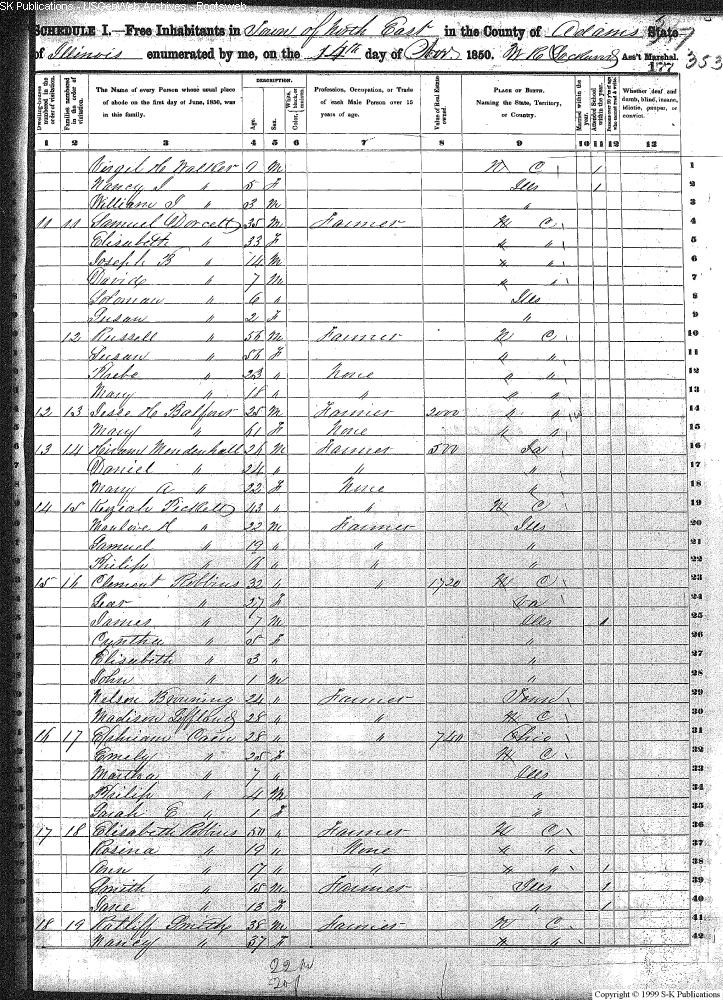 SK Publications - USGenWeb Archives - Rootsweb
SCHEDULE I.—Free Inhabitants in Town of North East in the County of Adams State
of Illinois enumerated by me, on the 14th day of Nov 1850. Ass't Marshal.
177 353
Dwelling-houses numbered in the order of visitation.
Families numbered in the order of visitation.
The Name of every Person whose usual place of abode on the first day of June, 1850, was in this family.
DESCRIPTION.
Age.
Sex.
Color, White, black, or mulatto.
Profession, Occupation, or Trade of each Male Person over 15 years of age.
Value of Real Estate owned.
PLACE OF BIRTH. Naming the State, Territory, or Country.
Married within the year.
Attended School within the year.
Whether deaf and dumb, blind, insane, idiotic, pauper, or convict.
1 2 3 4 5 6 7 8 9 10 11 12 13
Virgil H Walker 9 M N C 1 1
Nancy J " 5 F Ills 1 2
William J " 3 M " 3
11 11 Samuel Dorcett 35 M Farmer N C 4
Elisabeth " 33 F " " 5
Joseph B " 14 M " " 6
David " 7 M " " 7
Soloman " 6 " Ills 8
Susan " 2 F " 9
12 Russell " 56 M Farmer N C 10
Susan " 56 F " " 11
Phebe " 23 " None " " 12
Mary " 18 " " " " 13
12 13 Jesse H Balfour 25 M Farmer 2000 " " 14
Mary " 61 F None " " 15
13 14 Hiram Mendenhall 26 M Farmer 500 Ia 16
Daniel " 24 " " " 17
Mary A " 22 F None " 18
14 15 Keziah Pickett 43 " " N C 19
Manlove H " 22 M Farmer Ills 20
Samuel " 19 " " " 21
Philip " 16 " " " 22
15 16 Clemont Robbins 32 " " 1720 N C 23
" 27 F Va 24
James " 7 M Ills 1 25
Cynthia " 5 F " 26
Elisabeth " 3 " " 27
John " 1 M " 28
Nelson Browning 24 " Farmer Tenn 29
Madison 28 " " N C 30
16 17 Ephriam 28 " " 740 Ohio 31
Emely " 25 F N C 32
Martha " 7 " Ills 33
Philip " 4 M " 34
Sarah E " 1 F " 35
17 18 Elisabeth Robbins 50 " Farmer N C 36
Rosina " 19 " None " " 37
Ann " 17 " " " " 1 38
Smith " 15 M Farmer Ills 1 39
Jane " 13 F " 1 40
18 19 Ratliff Smith 38 M Farmer N C 41
Nancy " 37 F " " 42
22 M
20 f
Copyright © 1999 S-K Publications